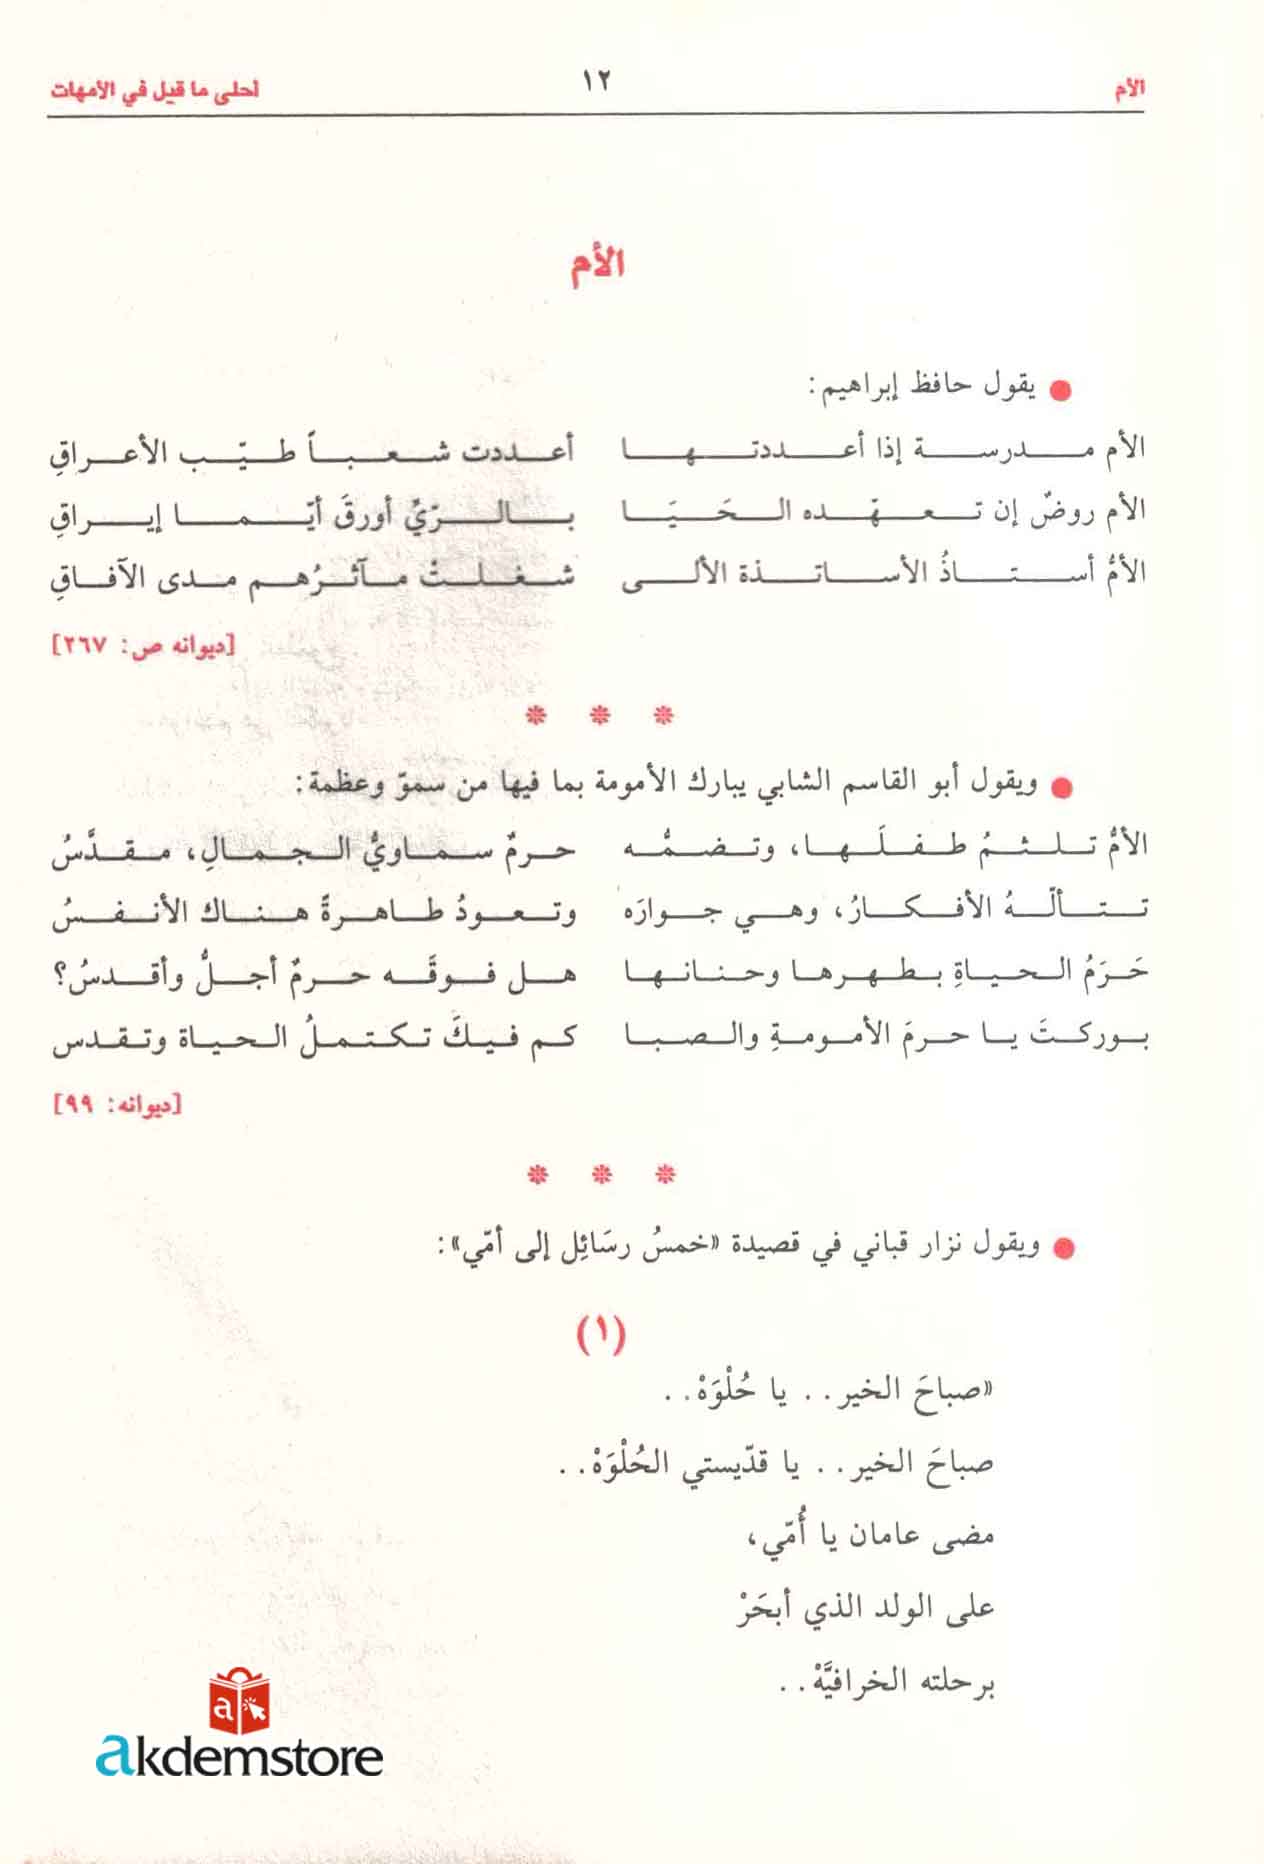 الأم ١٢ أحلى ما قيل في الأمهات
الأم
يقول حافظ إبراهيم:
الأم مدرسة إذا أعددتها أعددت شعباً طيّب الأعراقِ
الأم روضٌ إن تعهّده الحَيَا بالريِّ أورقَ أيّما إيراقِ
الأمُّ أستاذُ الأساتذة الألى شغلتْ مآثرُهم مدى الآفاقِ
[ديوانه ص: ٢٦٧]
* * *
ويقول أبو القاسم الشابي يبارك الأمومة بما فيها من سموّ وعظمة:
الأمُّ تلثمُ طفلَها، وتضمُّه حرمٌ سماويُّ الجمالِ، مقدَّسُ
تتألّهُ الأفكارُ، وهي جوارَه وتعودُ طاهرةً هناك الأنفسُ
حَرَمُ الحياةِ بطهرها وحنانها هل فوقَه حرمٌ أجلُّ وأقدسُ؟
بوركتَ يا حرمَ الأمومةِ والصبا كم فيكَ تكتملُ الحياة وتقدس
[ديوانه: ٩٩]
* * *
ويقول نزار قباني في قصيدة «خمسُ رسَائِل إلى أمّي»:
(١)
«صباحَ الخير.. يا حُلْوَهْ..
صباحَ الخير.. يا قدّيستي الحُلْوَهْ..
مضى عامان يا أُمّي،
على الولد الذي أبحَرْ
برحلته الخرافيَّهْ..
a
akdemstore